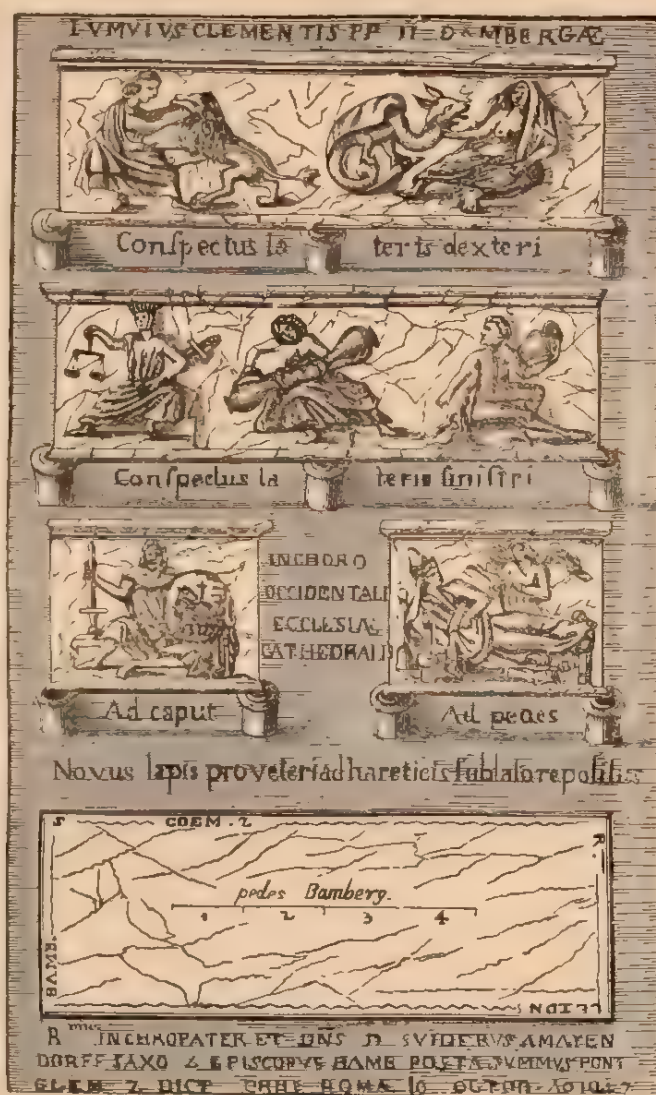 TVMVLVS CLEMENTIS PP II BAMBERGÆ
Conſpectus la teris dexteri
Conſpectus la teris ſiniſtri
IN CHORO
OCCIDENTALI
ECCLESIÆ
CATHEDRALIS
Ad caput
Ad pedes
Novus lapis pro veteri ad hæreticis ſublato repoſitus
S COEM. 2 R.
pedes Bamberg.
1 2 3 4
BAMB.
R mus IN CHRO PATER ET DNS D SVIDERVS A MAYEN
DORFF SAXO 2 EPISCOPVS BAMB POSTA SVMMVS PONT
CLEM 2 DICT ROMA 10